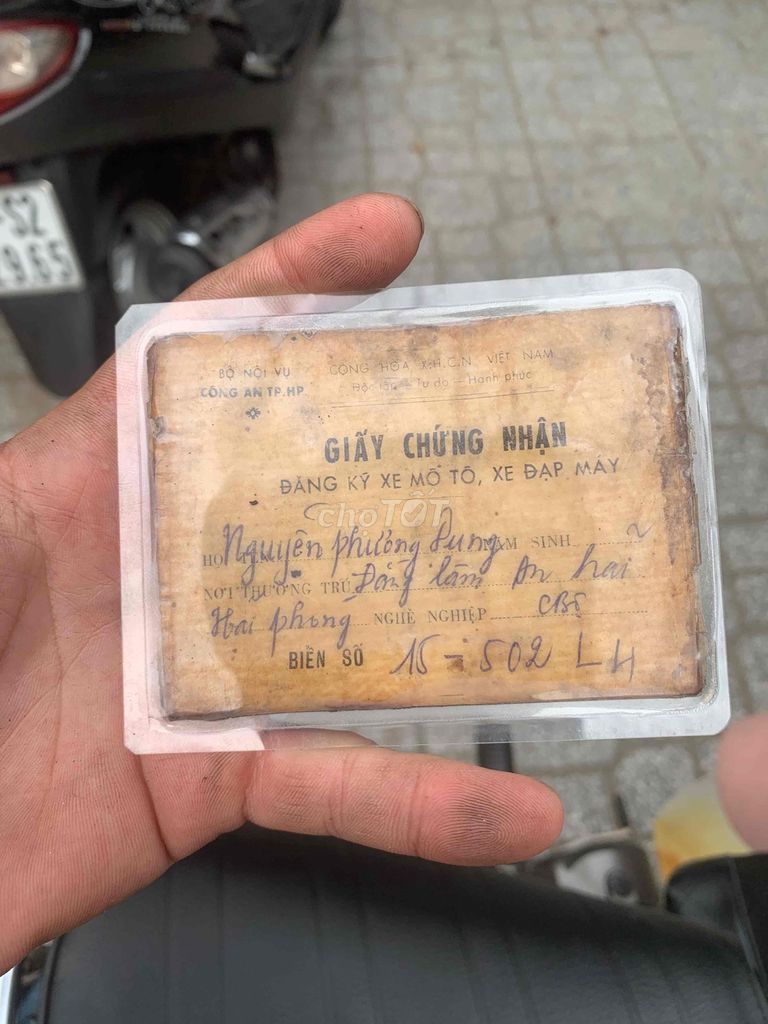 S2
965
BỘ NỘI VỤ
CÔNG AN TP.HP
CỘNG HÒA X.H.C.N VIỆT NAM
Độc lập — Tự do — Hạnh phúc
GIẤY CHỨNG NHẬN
ĐĂNG KÝ XE MÔ TÔ, XE ĐẠP MÁY
choTỐT
HỌ Nguyễn Phương Dung NĂM SINH
NƠI THƯỜNG TRÚ Đằng lâm An hải
Hải phòng NGHỀ NGHIỆP CBộ
BIỂN SỐ 15 – 502 LH